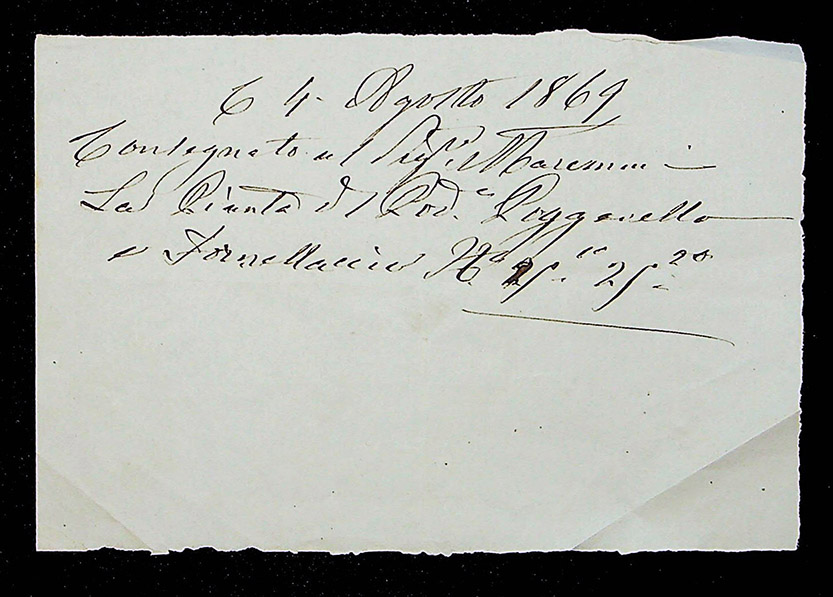 C 4. Agosto 1869
Consegnato al Sigr. Maremmi
La Pianta del Pod.e Poggerello
e Fornellaccio N.